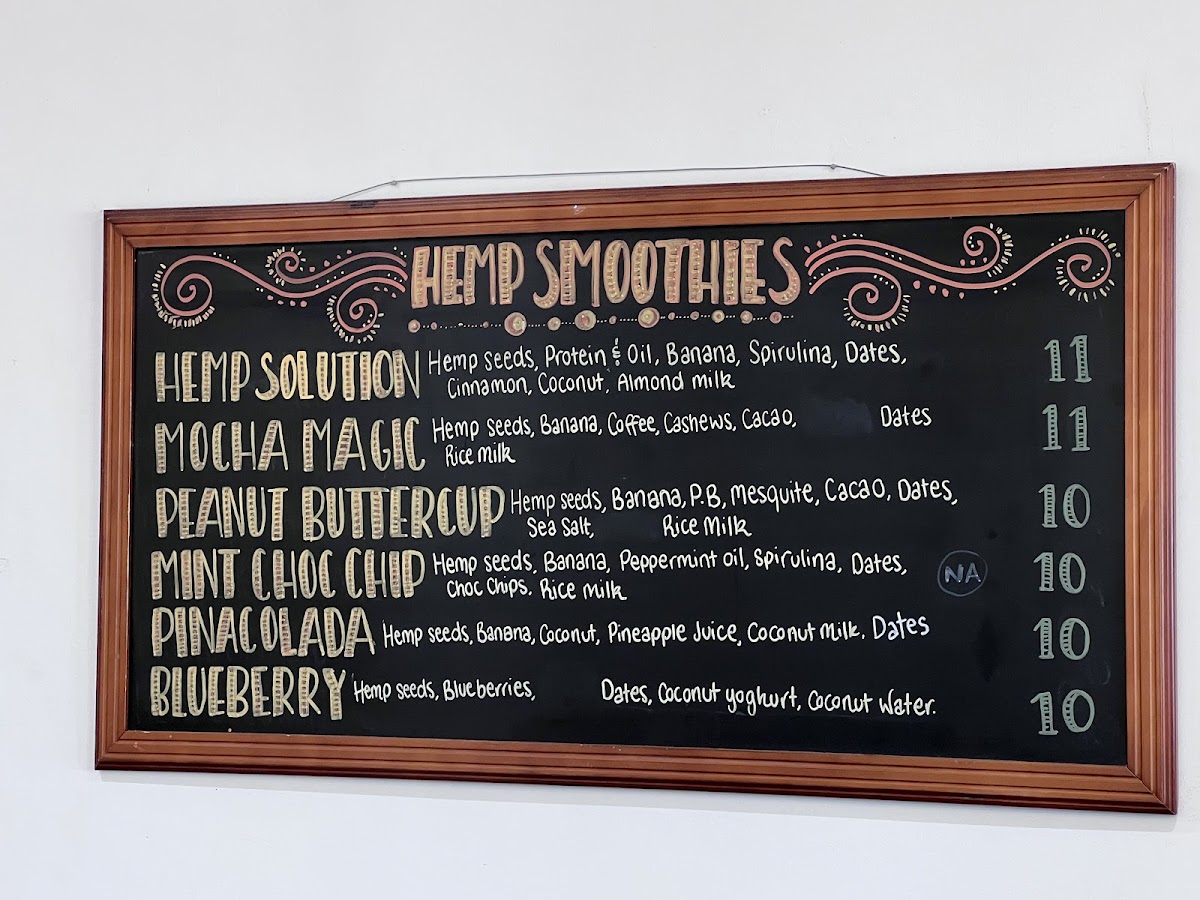 HEMP SMOOTHIES
HEMP SOLUTION Hemp seeds, Protein & Oil, Banana, Spirulina, Dates, 11
Cinnamon, Coconut, Almond milk
MOCHA MAGIC Hemp seeds, Banana, Coffee, Cashews, Cacao, Dates 11
Rice milk
PEANUT BUTTERCUP Hemp seeds, Banana, P.B, Mesquite, Cacao, Dates, 10
Sea Salt, Rice Milk
MINT CHOC CHIP Hemp seeds, Banana, Peppermint oil, Spirulina, Dates, NA 10
Choc Chips. Rice milk
PINACOLADA Hemp seeds, Banana, Coconut, Pineapple Juice, Coconut Milk. Dates 10
BLUEBERRY Hemp seeds, Blueberries, Dates, Coconut yoghurt, Coconut Water. 10